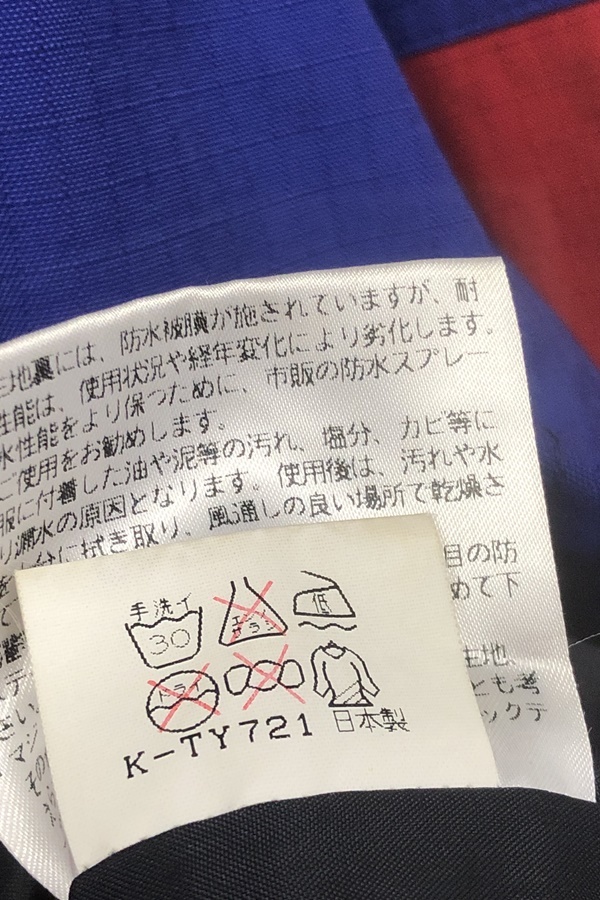 生地裏には、防水被膜が施されていますが、耐
性能は、使用状況や経年変化により劣化します。
水性能をより保つために、市販の防水スプレー
ご使用をお勧めします。
服に付着した油や泥等の汚れ、塩分、カビ等に
り漏水の原因となります。使用後は、汚れや水
拭き取り、風通しの良い場所で乾燥さ
目の防
めて下
生地、
とも考
ックテ
手洗イ
30
エンソ
サラシ
低
ドライ
K-TY721
日本製